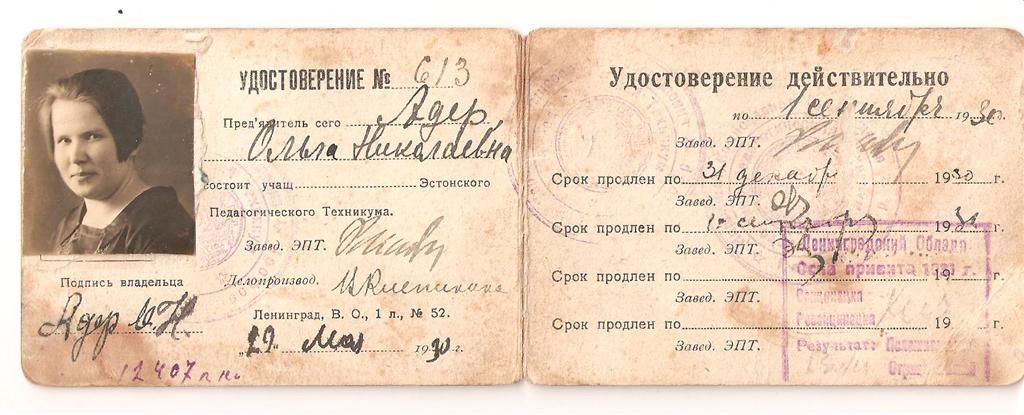 УДОСТОВЕРЕНИЕ № 613
Пред'явитель сего Адер
Ольга Николаевна
состоит учащ. Эстонского
Педагогического Техникума.
Завед. ЭПТ.
Делопроизвод.
Подпись владельца
Адер
Ленинград, В. О., 1 л., № 52.
„29" Мая 1930 г.
12407
Удостоверение действительно
по 1 сентября 1930 г.
Завед. ЭПТ.
Срок продлен по 31 декабр 1930 г.
Завед. ЭПТ.
Срок продлен по 1 1931 г.
Завед. ЭПТ.
Срок продлен по 19 г.
Завед. ЭПТ.
Срок продлен по 19 г.
Завед. ЭПТ.
Ленинградский
Оспа привита г.
Вакцинация
Ревакцинация
Результат: